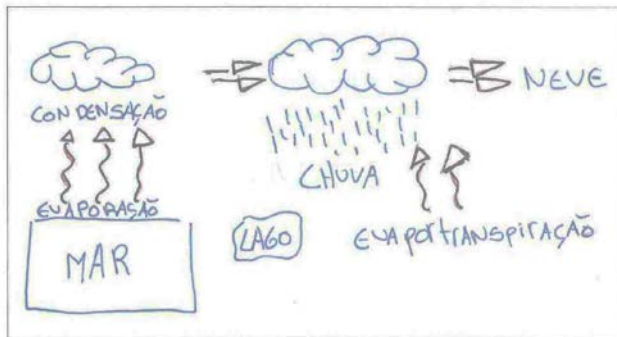 CONDENSAÇÃO
NEVE
CHUVA
EVAPORAÇÃO
MAR
LAGO
EVAPORTRANSPIRAÇÃO